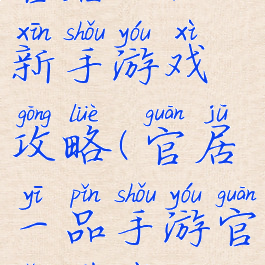 xīn shǒu yóu xì
新手游戏
gōng lüè guān jū
攻略(官居
yī pǐn shǒu yóu guān
一品手游官